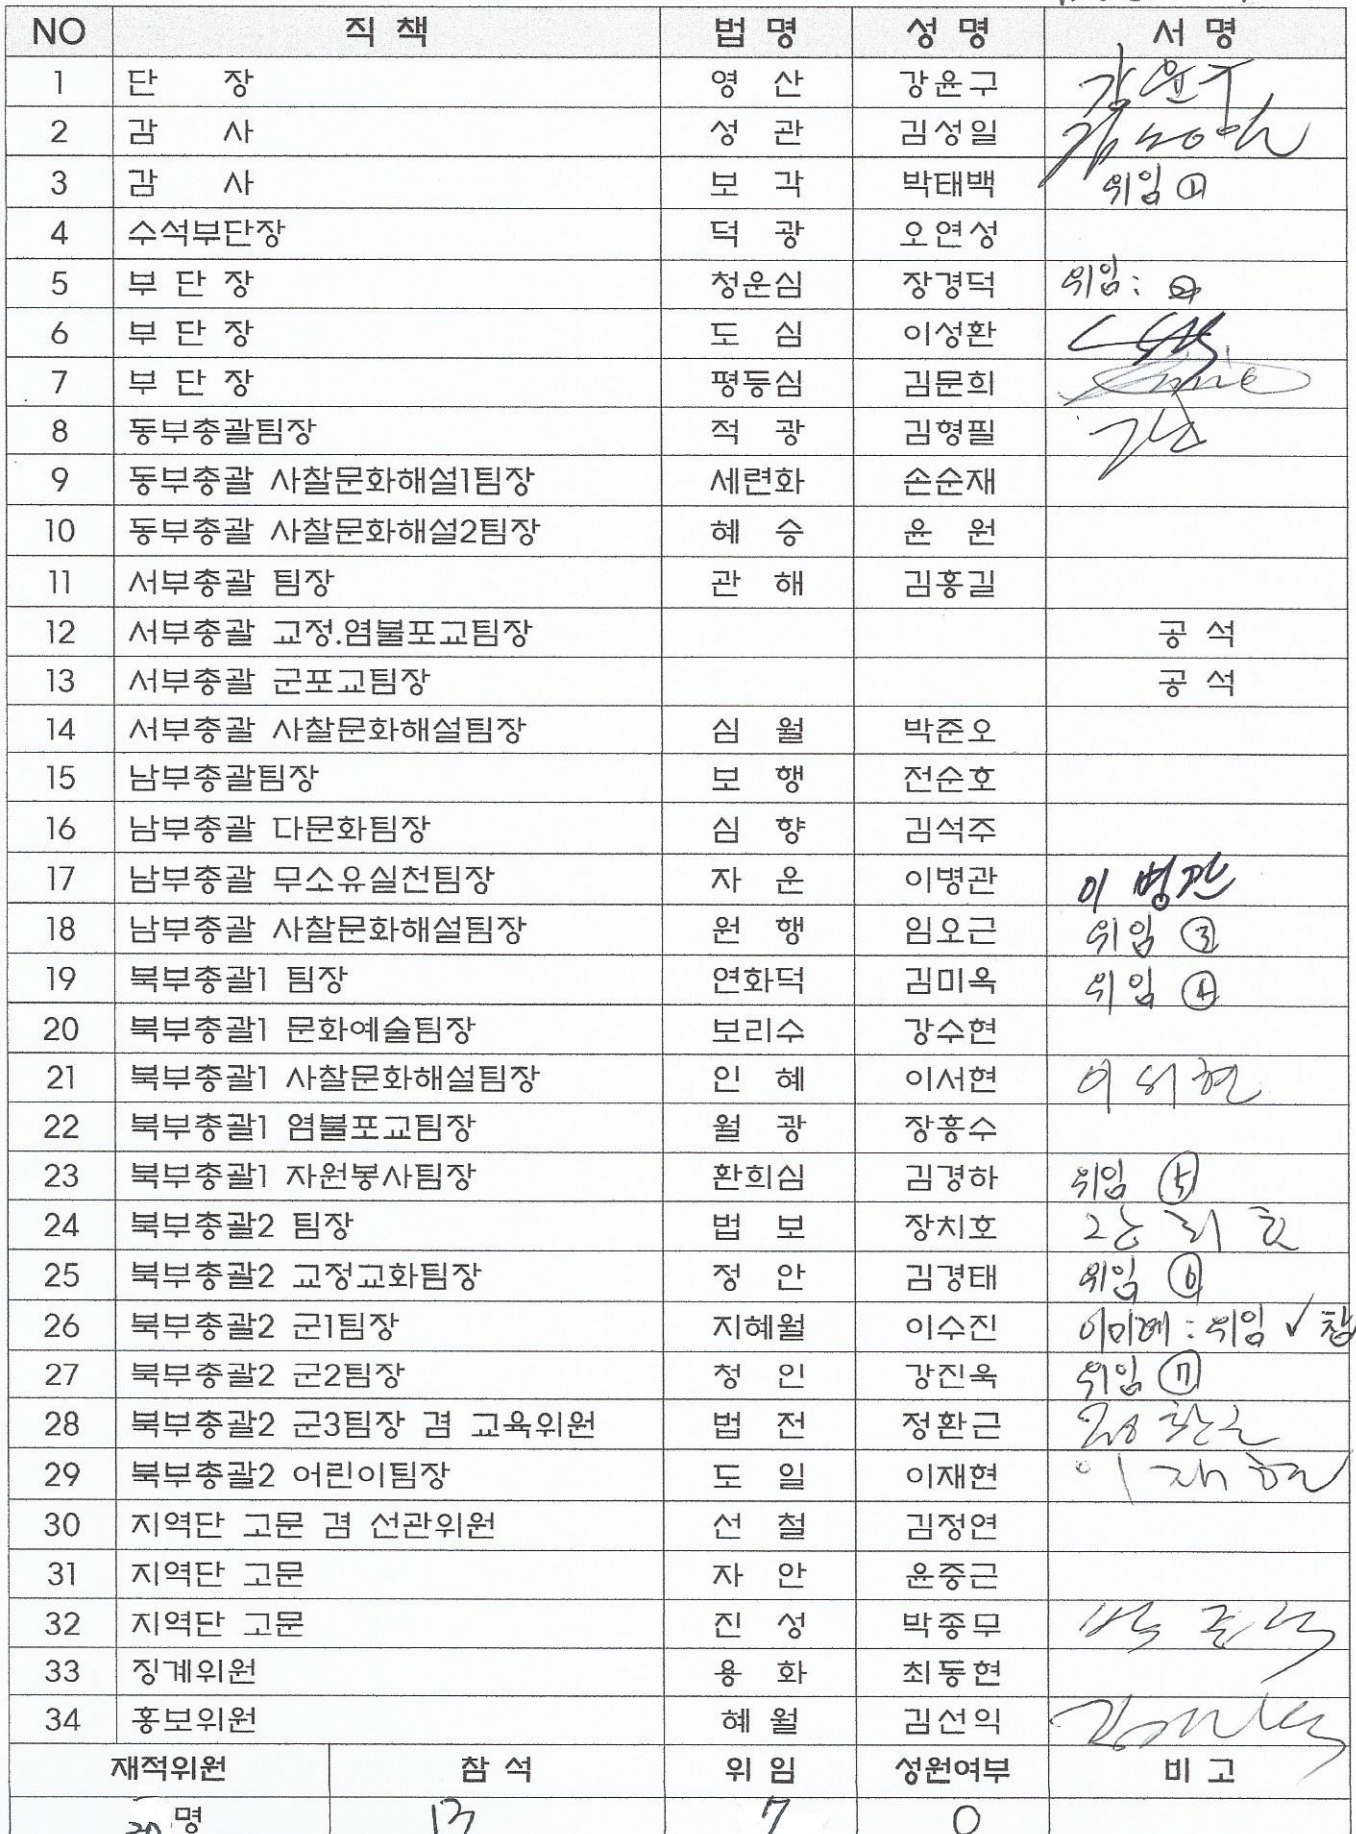 NO 직 책 법 명 성 명 서 명
1 단 장 영 산 강윤구 강윤구
2 감 사 성 관 김성일
3 감 사 보 각 박태백 위임 ①
4 수석부단장 덕 광 오연성
5 부 단 장 청운심 장경덕 위임 : ②
6 부 단 장 도 심 이성환
7 부 단 장 평등심 김문희
8 동부총괄팀장 적 광 김형필
9 동부총괄 사찰문화해설1팀장 세련화 손순재
10 동부총괄 사찰문화해설2팀장 혜 승 윤 원
11 서부총괄 팀장 관 해 김홍길
12 서부총괄 교정.염불포교팀장 공 석
13 서부총괄 군포교팀장 공 석
14 서부총괄 사찰문화해설팀장 심 월 박준오
15 남부총괄팀장 보 행 전순호
16 남부총괄 다문화팀장 심 향 김석주
17 남부총괄 무소유실천팀장 자 운 이병관 이병관
18 남부총괄 사찰문화해설팀장 원 행 임오근 위임 ③
19 북부총괄1 팀장 연화덕 김미옥 위임 ④
20 북부총괄1 문화예술팀장 보리수 강수현
21 북부총괄1 사찰문화해설팀장 인 혜 이서현 이서현
22 북부총괄1 염불포교팀장 월 광 장흥수
23 북부총괄1 자원봉사팀장 환희심 김경하 위임 ⑤
24 북부총괄2 팀장 법 보 장치호 장치호
25 북부총괄2 교정교화팀장 정 안 김경태 위임 ⑥
26 북부총괄2 군1팀장 지혜월 이수진 이미례 : 위임 ✓ 참
27 북부총괄2 군2팀장 청 인 강진욱 위임 ⑦
28 북부총괄2 군3팀장 겸 교육위원 법 전 정환근 정환근
29 북부총괄2 어린이팀장 도 일 이재현 이재현
30 지역단 고문 겸 선관위원 선 철 김정연
31 지역단 고문 자 안 윤중근
32 지역단 고문 진 성 박종무
33 징계위원 용 화 최동현
34 홍보위원 혜 월 김선익
재적위원 참 석 위 임 성원여부 비 고
명 13 7 O